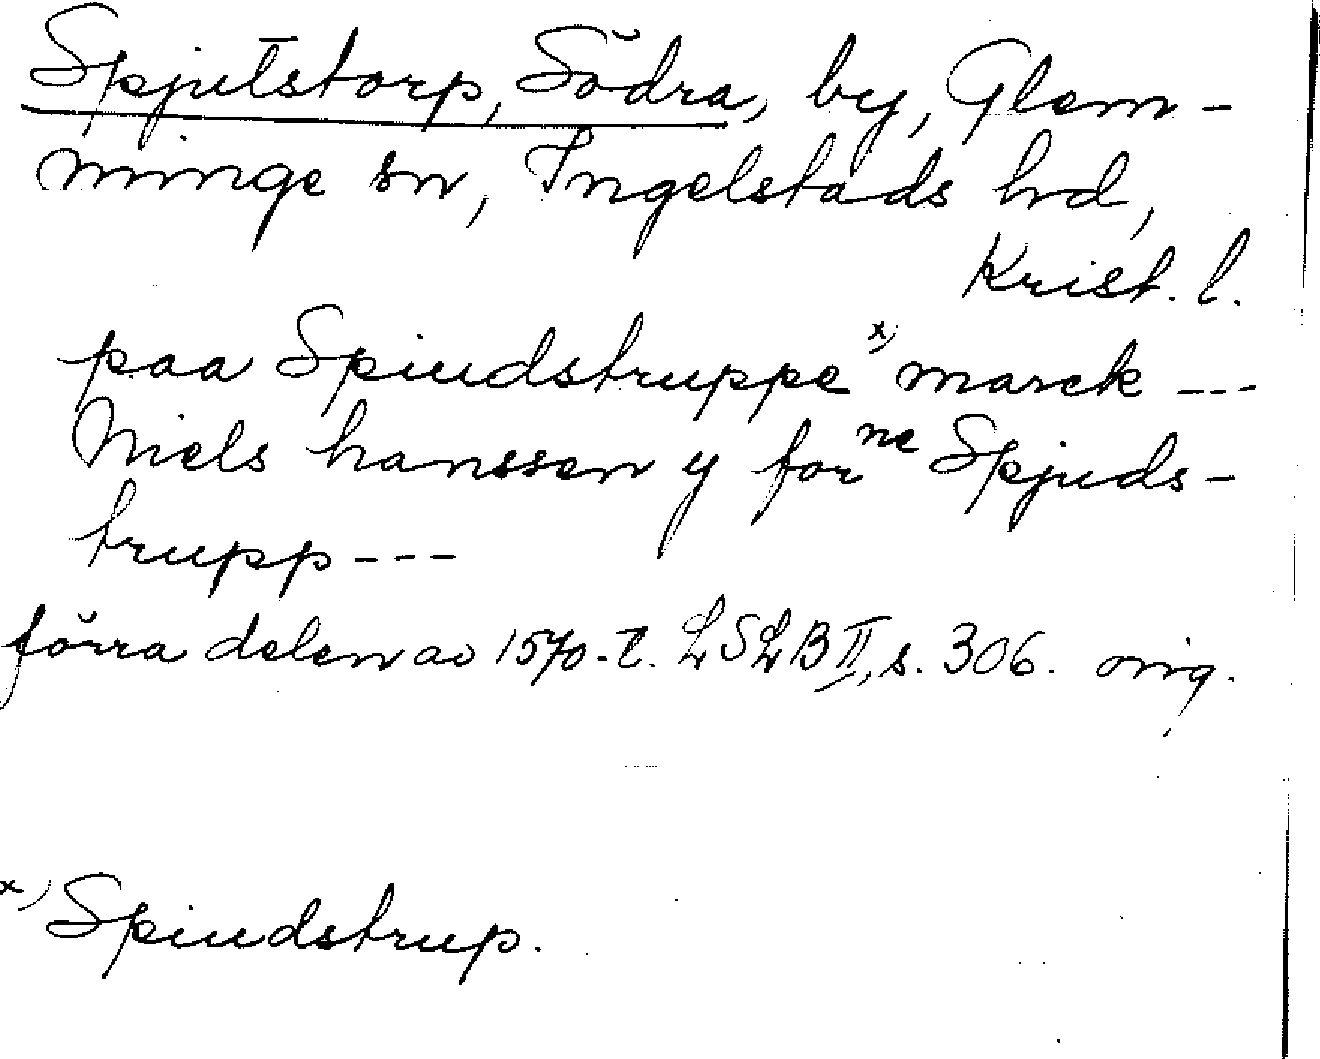 Spjutstorp, Södra, by, Glem-
minge sn, Ingelstads hrd,
Krist. l.
paa Spiudstruppe x) marck ---
Niels hanssen y for ne Spjuds-
trupp ---
förra delen av 1570-t. LSLB II, s. 306. orig.
x) Spiudstrup.